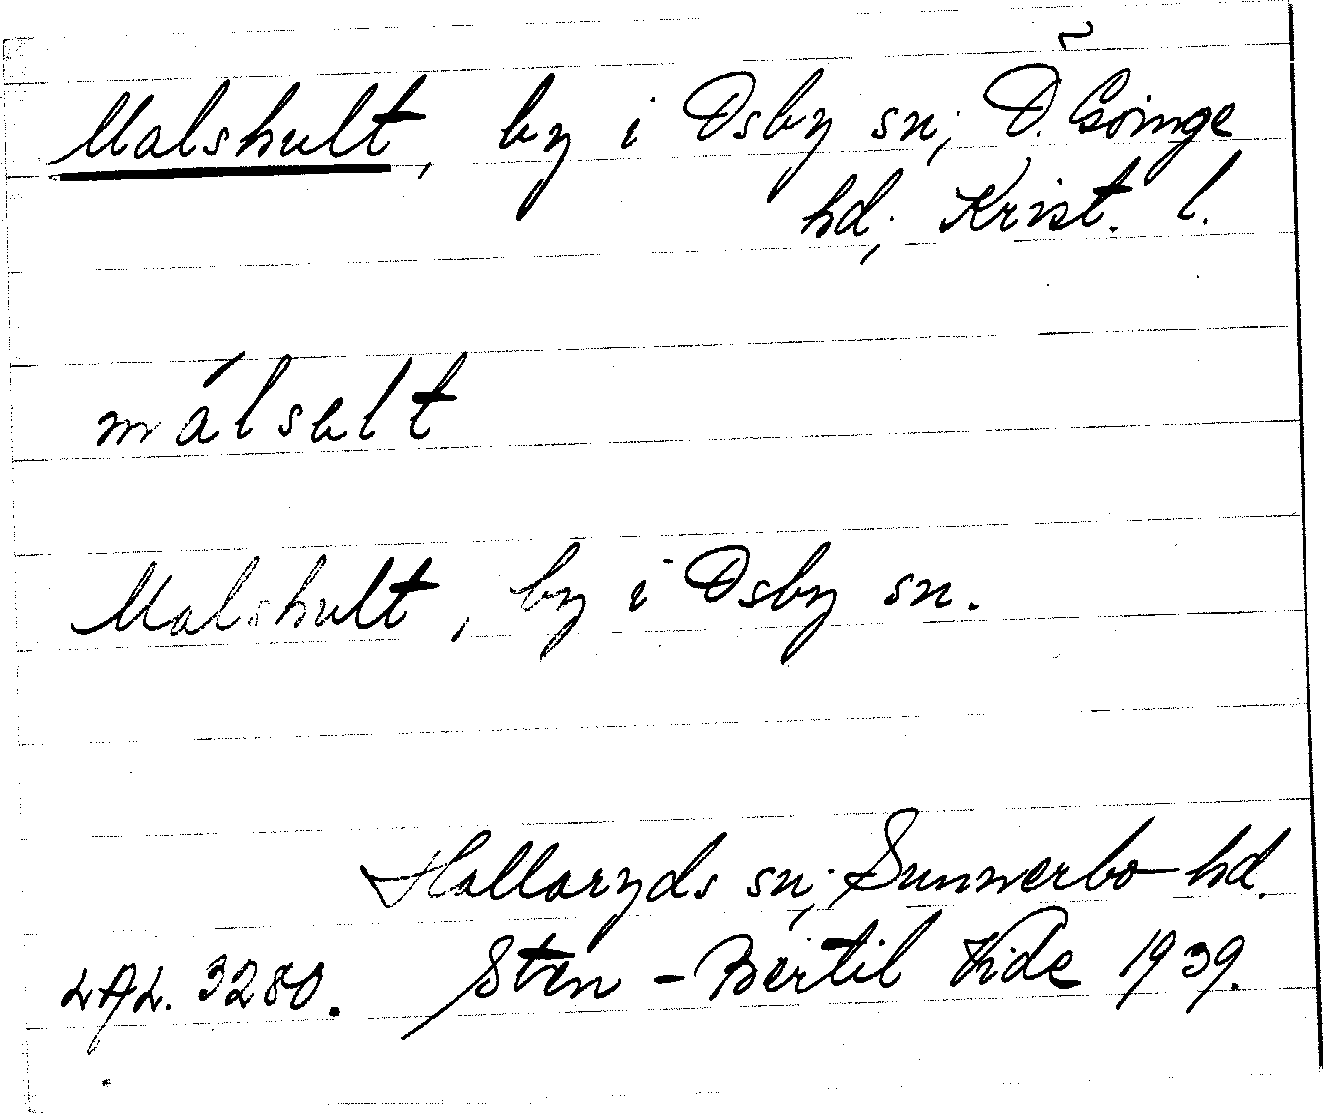 Malshult, by i Osby sn; Ö. Göinge
hd; Krist. l.
málselt
Malshult, by i Osby sn.
Hallaryds sn; Sunnerbo hd.
LAL. 3280. Sten-Bertil Vide 1939.